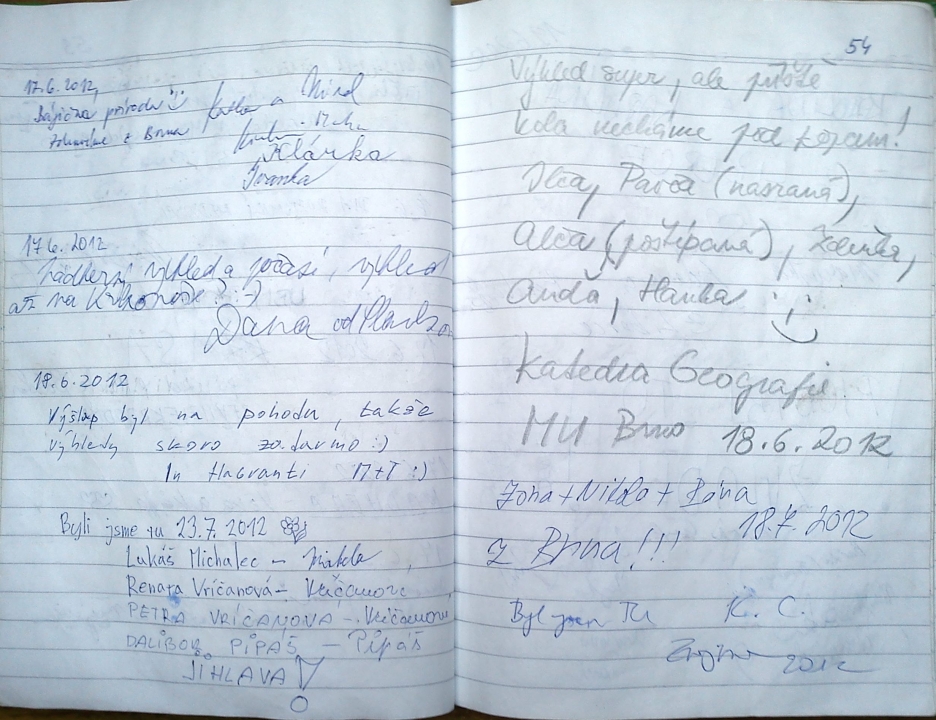 17.6.2012,
Báječná příroda
z Brna Katka a Mirek
Klárka
Ivanka
17.6.2012
Nádherný výhled a počasí, výhled
až na Krkonoše? :-)
Dana od
18.6.2012
Výšlap byl na pohodu, takže
výhledy skoro zadarmo :)
In flagranti M+T :)
Byli jsme tu 23.7.2012
Lukáš Michalec –
Renata Vričanová – Vričanová
PETRA VRIČANOVA – Vričanová
DALIBOR PIPAŠ – Pipaš
JIHLAVA!
54
Výhled super, ale příště
kola necháme pod kopcem!
Ilča, Pavča (nasraná),
Alča (poštípaná), Zdeňka,
Anďa, Hanka :)
Katedra Geografie
MU Brno 18.6.2012
+ Nikča +
18.7.2012
Z Brna!!!
Byl jsem TU K. C.
Znojmo 2012